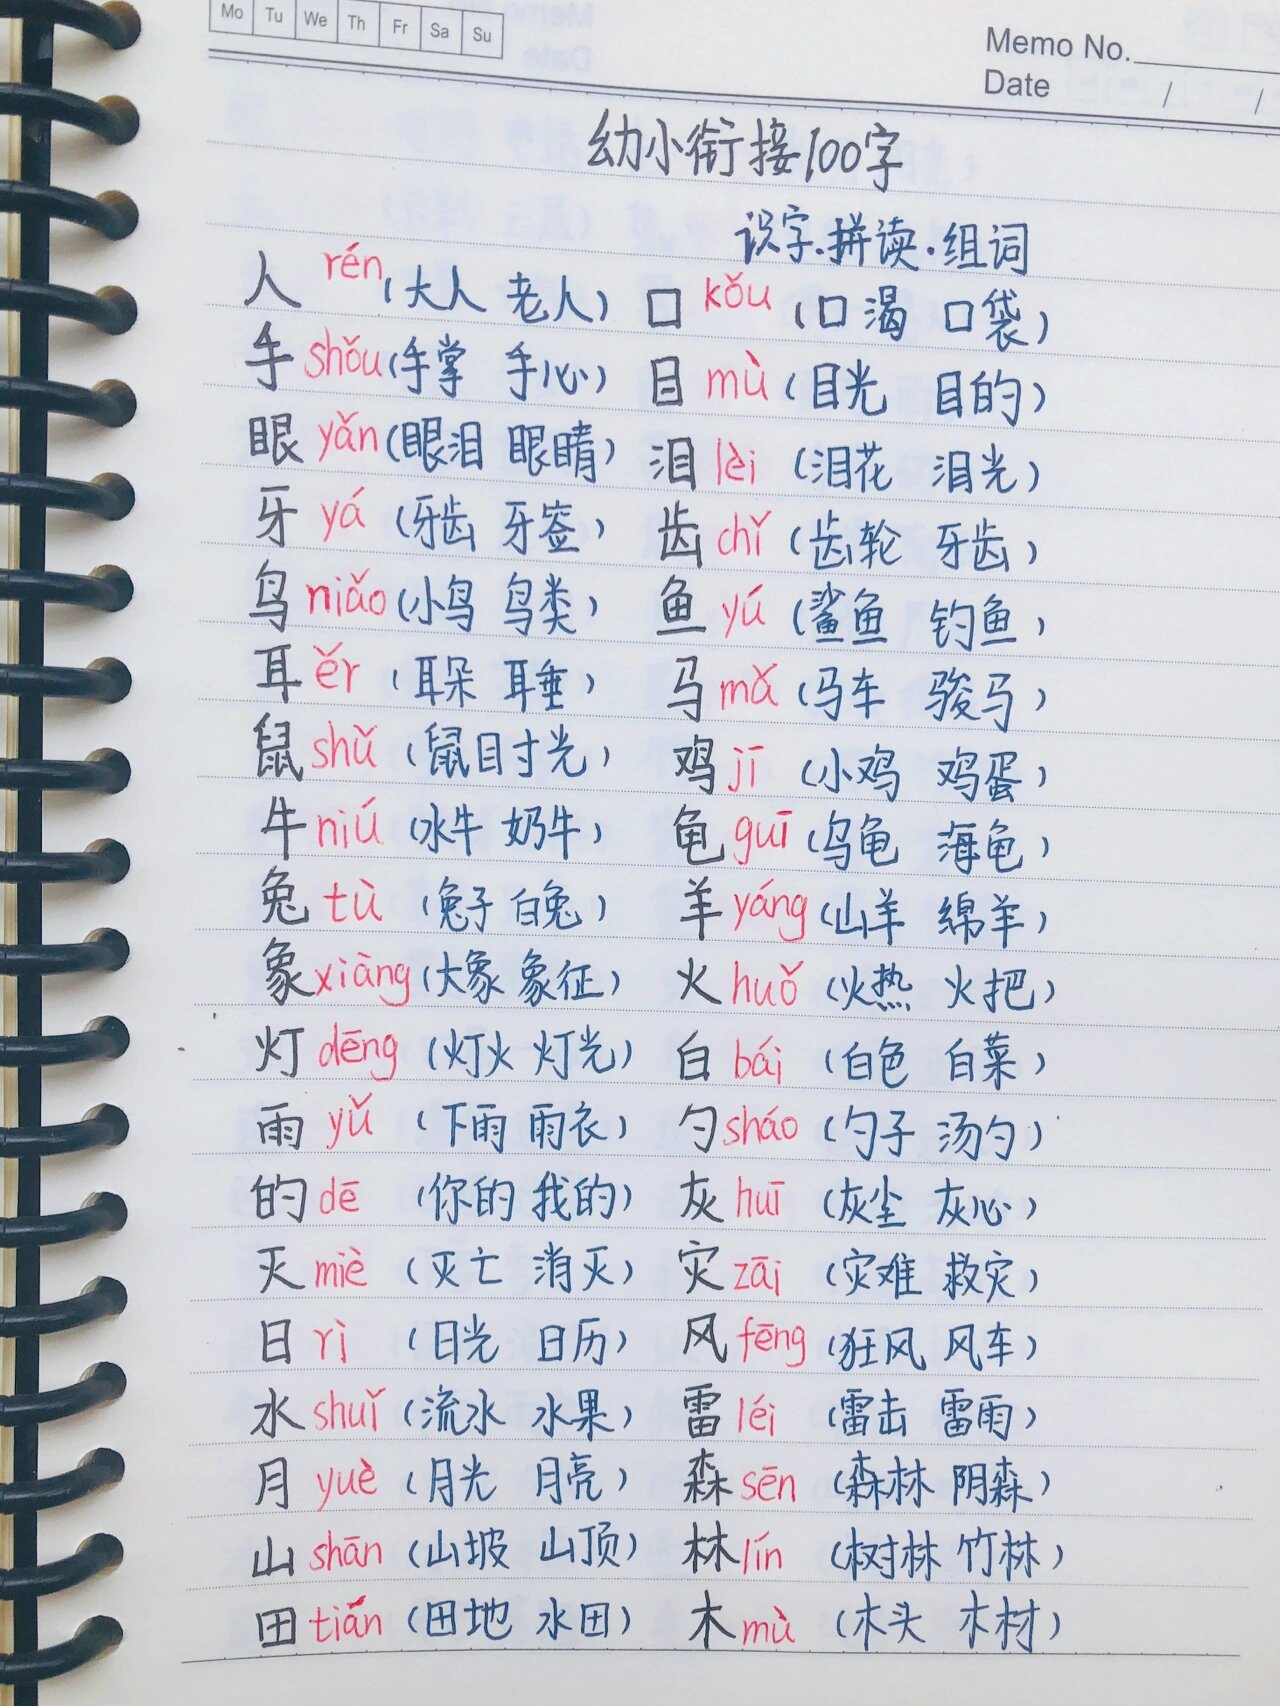 Mo Tu We Th Fr Sa Su
Memo No.
Date / /
幼小衔接100字
识字.拼读.组词
人 rén (大人 老人) 口 kǒu (口渴 口袋)
手 shǒu (手掌 手心) 目 mù (目光 目的)
眼 yǎn (眼泪 眼睛) 泪 lèi (泪花 泪光)
牙 yá (牙齿 牙签) 齿 chǐ (齿轮 牙齿)
鸟 niǎo (小鸟 鸟类) 鱼 yú (鲨鱼 钓鱼)
耳 ěr (耳朵 耳垂) 马 mǎ (马车 骏马)
鼠 shǔ (鼠目寸光) 鸡 jī (小鸡 鸡蛋)
牛 niú (水牛 奶牛) 龟 guī (乌龟 海龟)
兔 tù (兔子 白兔) 羊 yáng (山羊 绵羊)
象 xiàng (大象 象征) 火 huǒ (火热 火把)
灯 dēng (灯火 灯光) 白 bái (白色 白菜)
雨 yǔ (下雨 雨衣) 勺 sháo (勺子 汤勺)
的 dē (你的 我的) 灰 huī (灰尘 灰心)
灭 miè (灭亡 消灭) 灾 zāi (灾难 救灾)
日 rì (日光 日历) 风 fēng (狂风 风车)
水 shuǐ (流水 水果) 雷 léi (雷击 雷雨)
月 yuè (月光 月亮) 森 sēn (森林 阴森)
山 shān (山坡 山顶) 林 lín (树林 竹林)
田 tián (田地 水田) 木 mù (木头 木材)